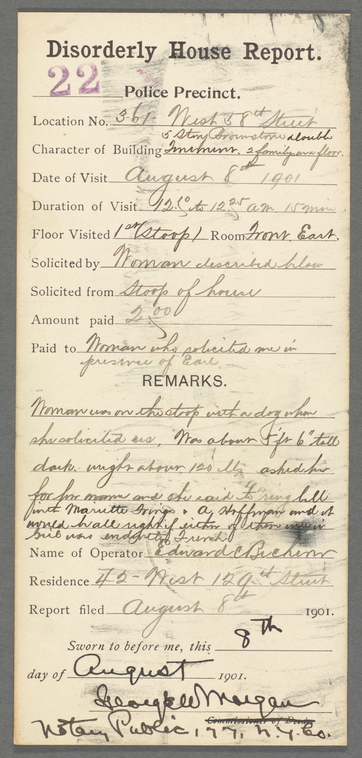 Disorderly House Report.
22
Police Precinct.
Location No. 361 West 38th Street
5 Story Brownstone double
Character of Building Tenement, 2 family on a floor.
Date of Visit August 8th 1901
Duration of Visit 12.10 to 12.25 a.m. 15 min
Floor Visited 1st (Stoop) Room Front, East.
Solicited by Woman described below
Solicited from Stoop of house
Amount paid 2.00
Paid to Woman who solicited me in
presence of Earl
REMARKS.
Woman was on the stoop with a dog when
she solicited us. Was about 5 ft 6" tall
dark. weight about 120 lbs asked her
for her name and she said to ring bell
with Mariette & A. Hoffman and it
would be all right if either of them were in
Girl was French
Name of Operator Edward C
Residence 42 West 129th Street
Report filed August 8th 1901.
Sworn to before me, this 8th
day of August 1901.
George W Morgan
Commissioner of Deeds
Notary Public, 177, N.Y. Co.